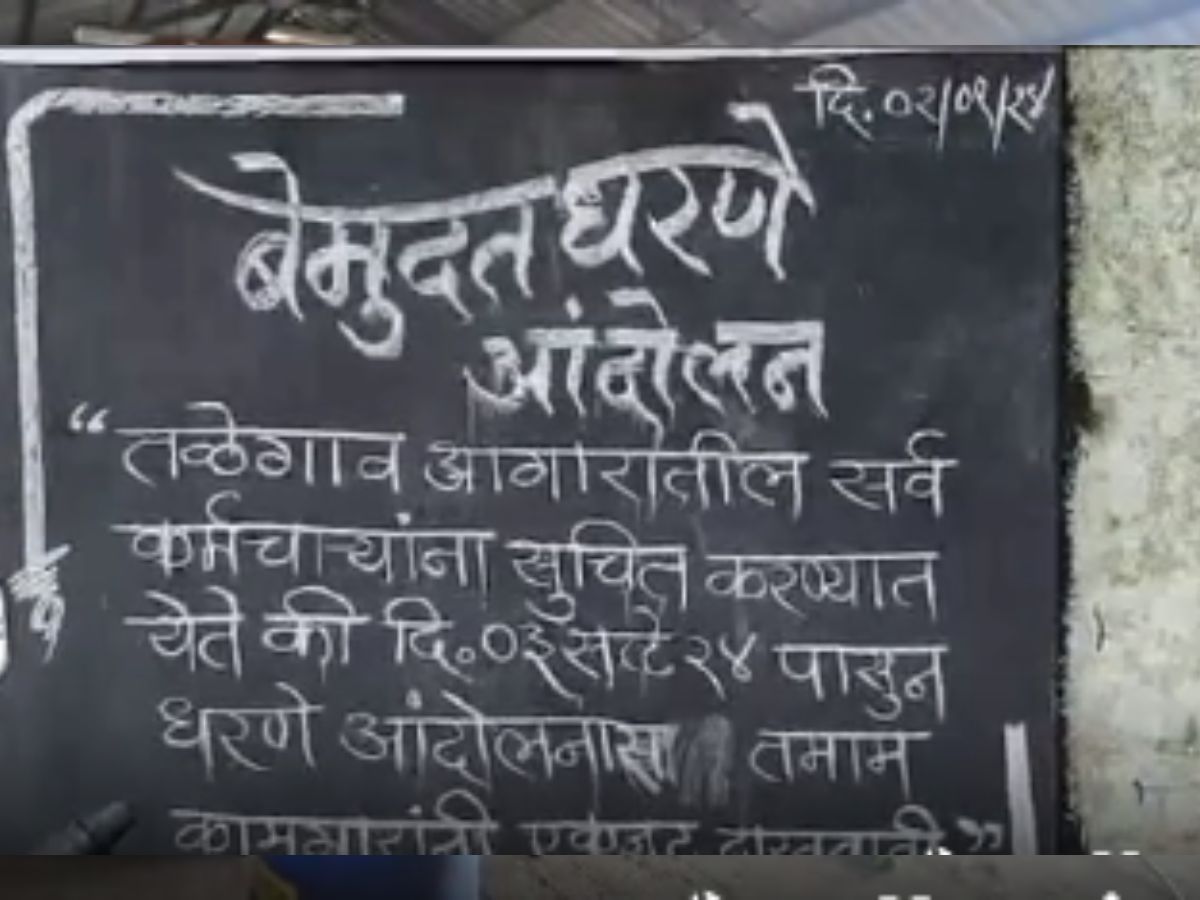 दि. ०२/०९/२४
बेमुदत धरणे
आंदोलन
“ तळेगाव आगारातील सर्व
कर्मचाऱ्यांना सुचित करण्यात
येते की दि.०३सप्टे२४ पासुन
धरणे आंदोलनासा तमाम
कामगारांनी एकजुट दाखवावी”